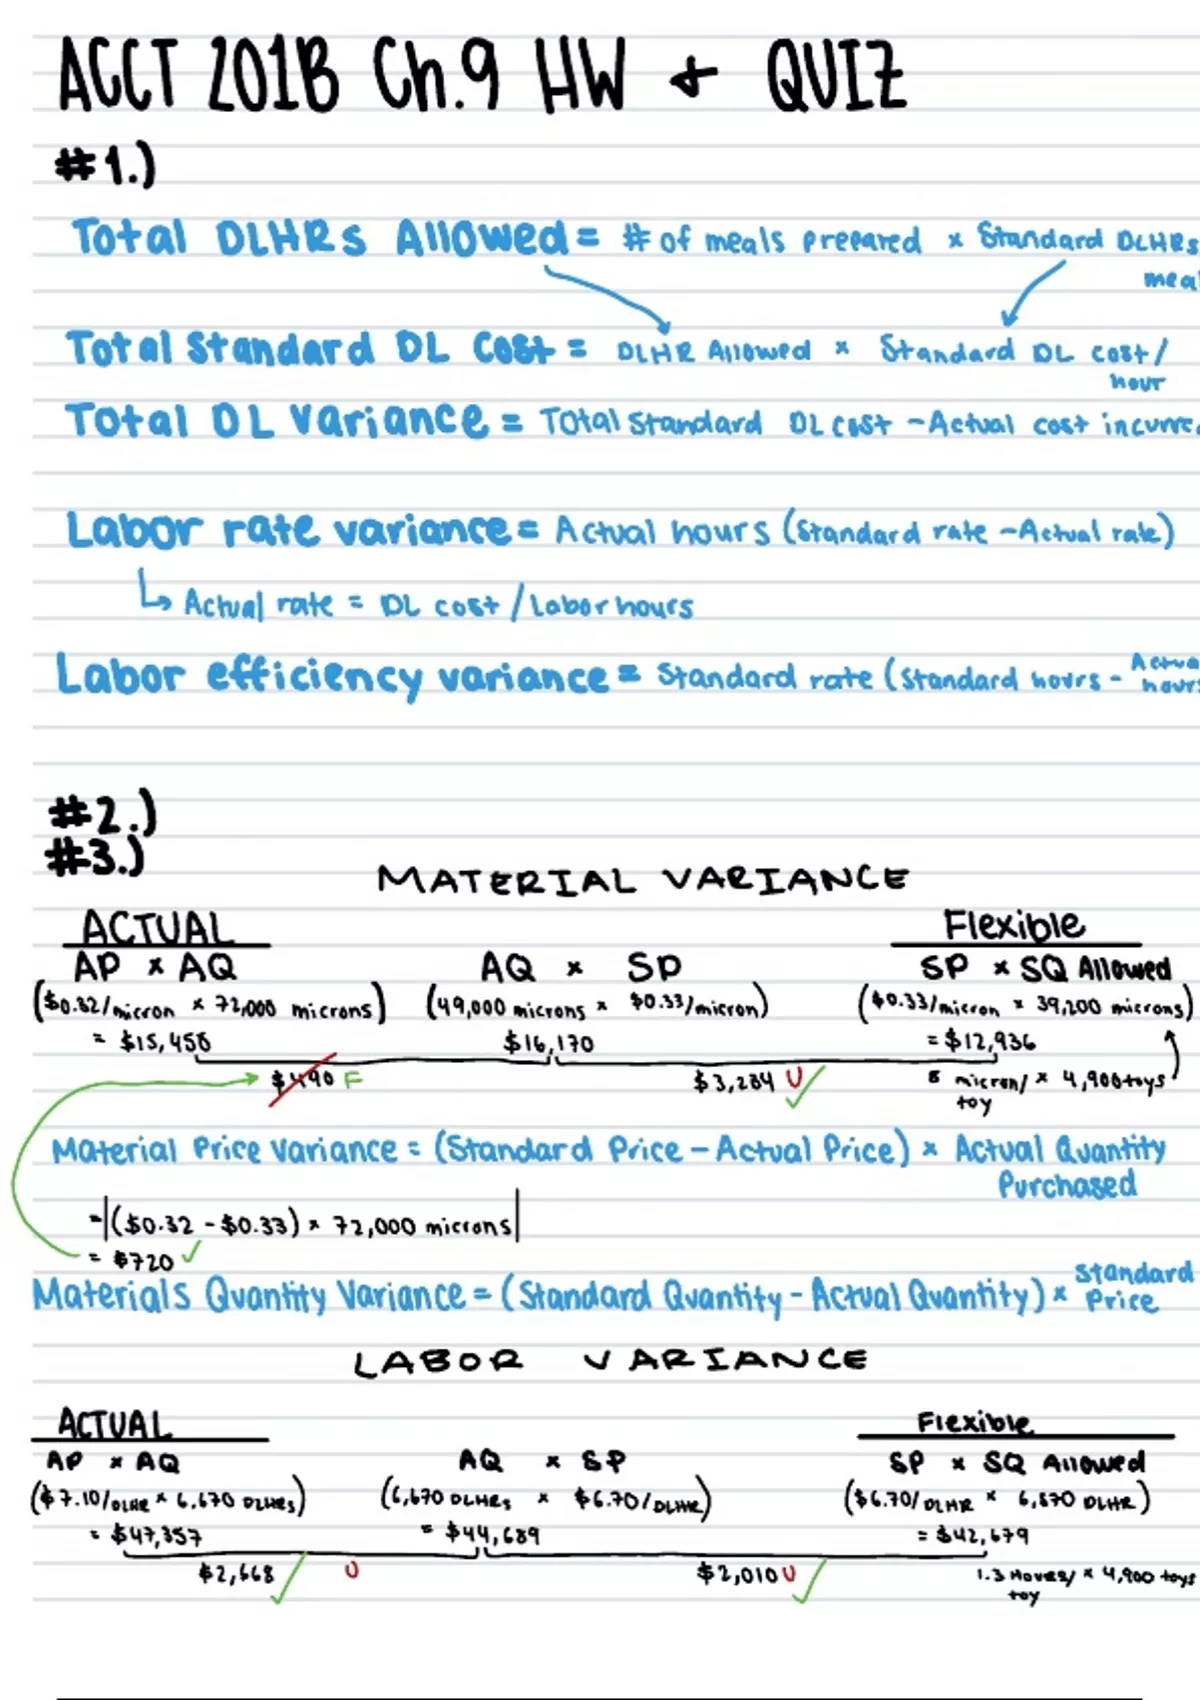 ACCT 201B Ch.9 HW + QUIZ
#1.)
Total DLHRs Allowed = # of meals prepared × Standard DLHRs
meal
Total Standard DL Cost = DLHR Allowed × Standard DL cost/
hour
Total DL Variance = Total Standard DL cost - Actual cost incurred
Labor rate variance = Actual hours (Standard rate - Actual rate)
↳ Actual rate = DL cost / Labor hours
Labor efficiency variance = Standard rate (Standard hours - Actual
hours
#2.)
#3.)
MATERIAL VARIANCE
ACTUAL Flexible
AP × AQ AQ × SP SP × SQ Allowed
($0.32/micron × 72,000 microns) (49,000 microns × $0.33/micron) ($0.33/micron × 39,200 microns)
= $15,458 $16,170 = $12,936
$490 F $3,234 U 8 micron/ × 4,900 toys
toy
Material Price Variance = (Standard Price - Actual Price) × Actual Quantity
Purchased
= |($0.32 - $0.33) × 72,000 microns|
= $720
Materials Quantity Variance = (Standard Quantity - Actual Quantity) × Standard
Price
LABOR VARIANCE
ACTUAL Flexible
AP × AQ AQ × SP SP × SQ Allowed
($7.10/DLHR × 6,670 DLHRs) (6,670 DLHRs × $6.70/DLHR) ($6.70/DLHR × 6,370 DLHR)
= $47,357 = $44,689 = $42,679
$2,668 U $2,010 U 1.3 Hours/ × 4,900 toys
toy